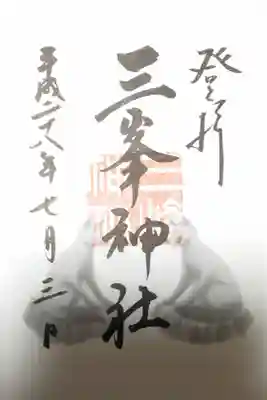 登拝
三峯神社
平成二十八年七月三日